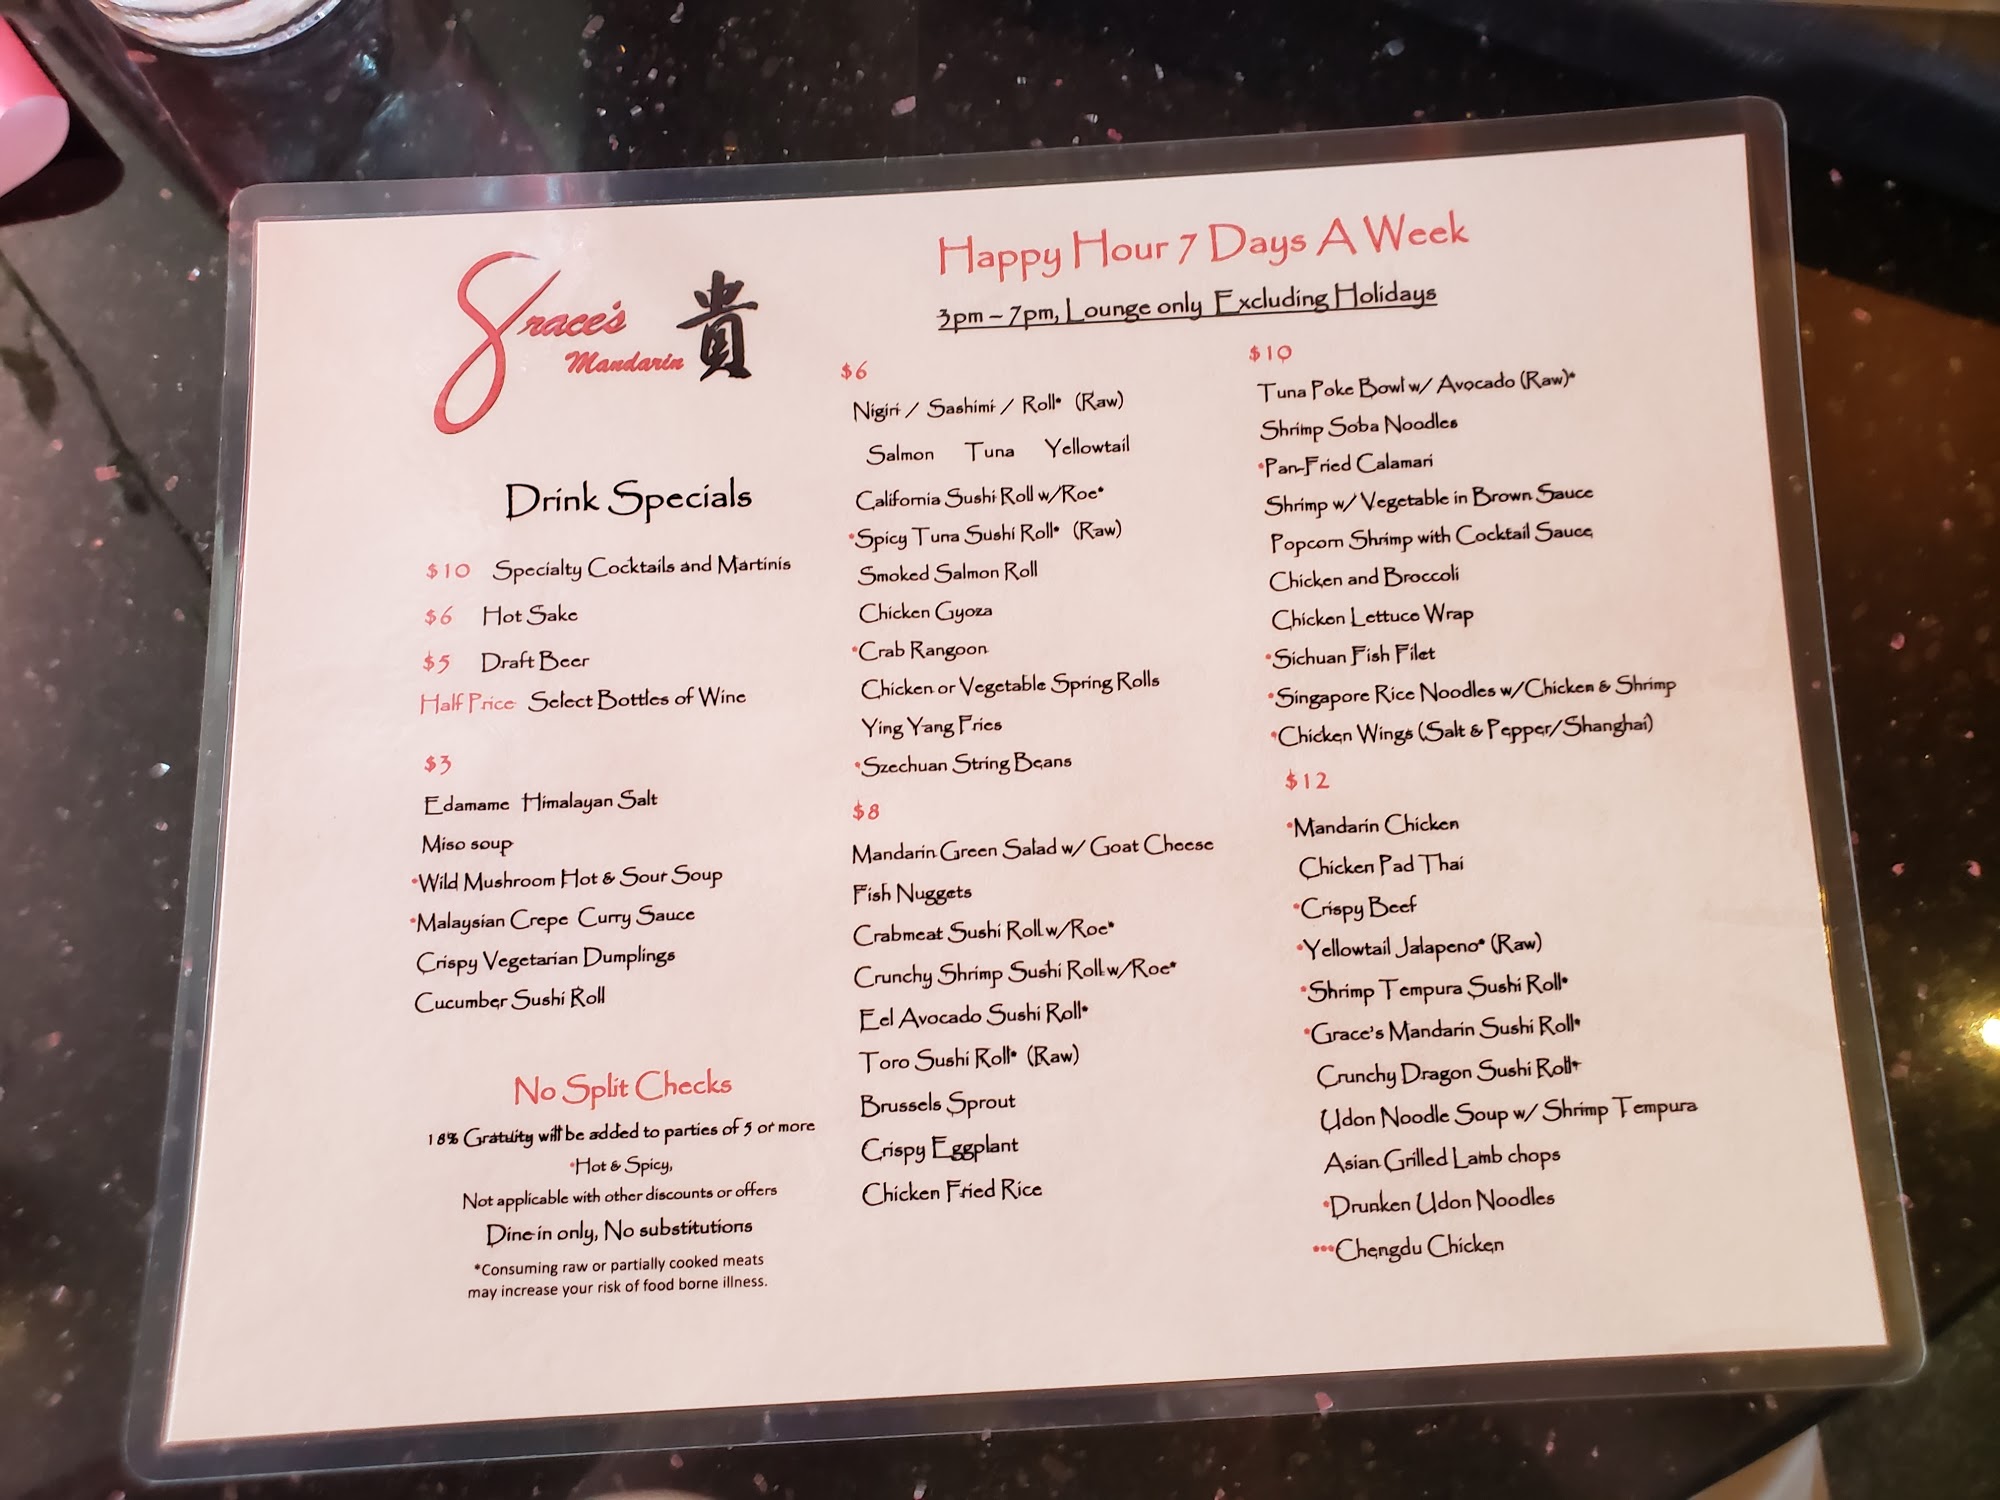 Grace's
Mandarin
貴
Happy Hour 7 Days A Week
3pm – 7pm, Lounge only Excluding Holidays
Drink Specials
$10 Specialty Cocktails and Martinis
$6 Hot Sake
$5 Draft Beer
Half Price Select Bottles of Wine
$3
Edamame Himalayan Salt
Miso soup
*Wild Mushroom Hot & Sour Soup
*Malaysian Crepe Curry Sauce
Crispy Vegetarian Dumplings
Cucumber Sushi Roll
No Split Checks
18% Gratuity will be added to parties of 5 or more
*Hot & Spicy,
Not applicable with other discounts or offers
Dine in only, No substitutions
*Consuming raw or partially cooked meats
may increase your risk of food borne illness.
$6
Nigiri / Sashimi / Roll* (Raw)
Salmon Tuna Yellowtail
California Sushi Roll w/Roe*
*Spicy Tuna Sushi Roll* (Raw)
Smoked Salmon Roll
Chicken Gyoza
*Crab Rangoon
Chicken or Vegetable Spring Rolls
Ying Yang Fries
*Szechuan String Beans
$8
Mandarin Green Salad w/ Goat Cheese
Fish Nuggets
Crabmeat Sushi Roll w/Roe*
Crunchy Shrimp Sushi Roll w/Roe*
Eel Avocado Sushi Roll*
Toro Sushi Roll* (Raw)
Brussels Sprout
Crispy Eggplant
Chicken Fried Rice
$10
Tuna Poke Bowl w/ Avocado (Raw)*
Shrimp Soba Noodles
*Pan-Fried Calamari
Shrimp w/ Vegetable in Brown Sauce
Popcorn Shrimp with Cocktail Sauce
Chicken and Broccoli
Chicken Lettuce Wrap
*Sichuan Fish Filet
*Singapore Rice Noodles w/Chicken & Shrimp
*Chicken Wings (Salt & Pepper/Shanghai)
$12
*Mandarin Chicken
Chicken Pad Thai
*Crispy Beef
*Yellowtail Jalapeno* (Raw)
*Shrimp Tempura Sushi Roll*
*Grace's Mandarin Sushi Roll*
Crunchy Dragon Sushi Roll*
Udon Noodle Soup w/ Shrimp Tempura
Asian Grilled Lamb chops
*Drunken Udon Noodles
***Chengdu Chicken